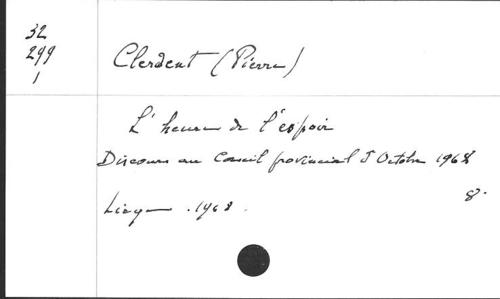 32
299
1
Clerdent (Pierre)
L'heure de l'espoir
Discours au Conseil provincial 5 Octobre 1968
8°
Liège . 1968 .